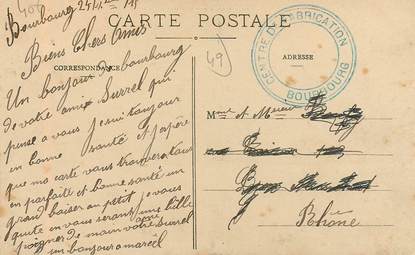 Bourbourg 25
CARTE POSTALE
Biens Chers Amis
CORRESPONDANCE
Un bonjour de bourbourg
de votre amie Surrel qui
pense a vous je suis toujour
en bonne santé et j'espère
que ma carte vous trouvera tous
en parfaite et bonne santé un
gran baiser au petit je vous
quite en vous serant une bille
poigner de main votre ami Surrel
un bonjour a marcel
49
CENTRE DE FABRICATION
BOURBOURG
ADRESSE
Mme et Mr
Rhône